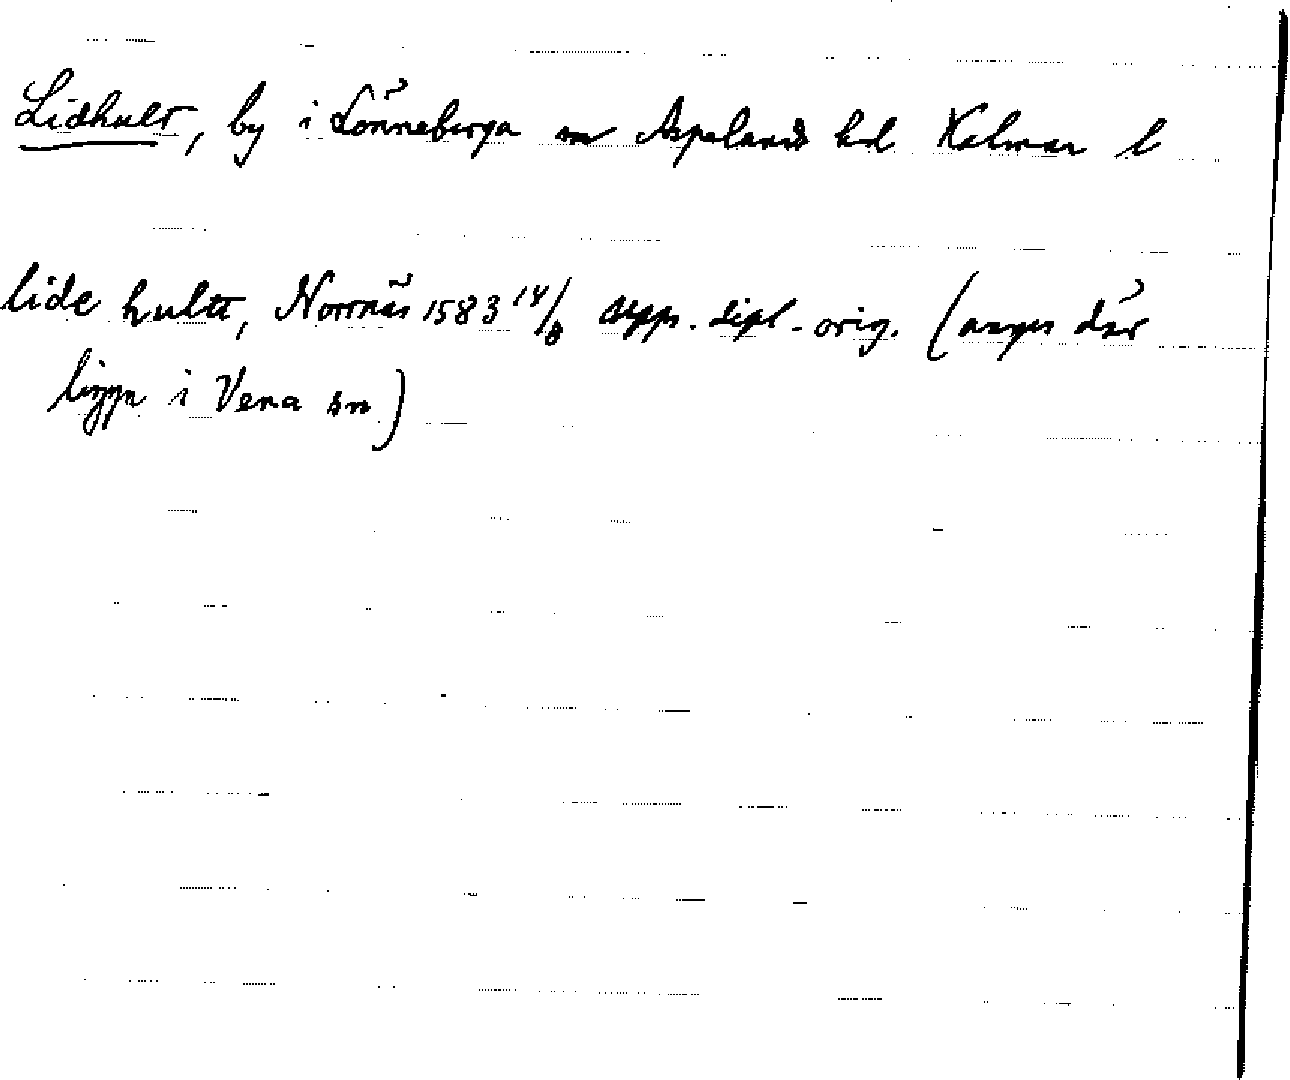 Lidhult, by i Lönneberga sn Aspelands hd Kalmar l
lide hultt, Norrnäs 1583 14/8 papp. dipl. orig. (anges där
ligga i Vena sn)